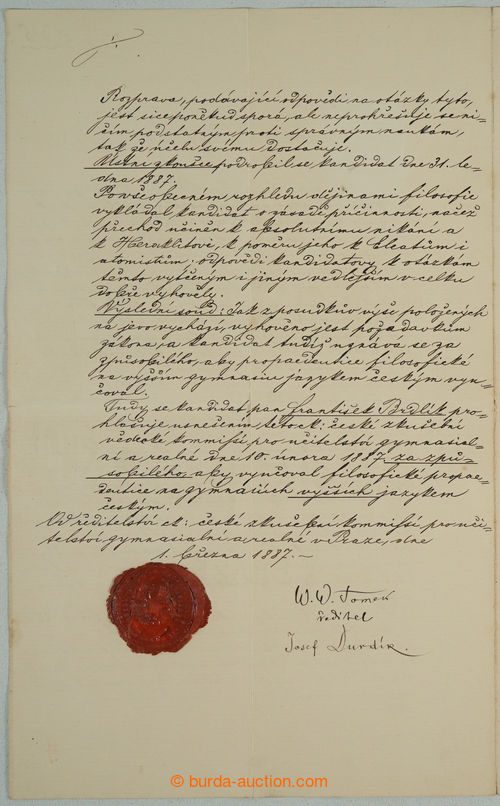 Rozprava, podávající odpovědi na otázky tyto,
jest sice poněkud spora, ale neprohřešuje se ni-
čím podstatným proti správným naukám,
tak že účelu svému dostačuje.
Ústní zkoušce podrobil se kandidát dne 31. le-
dna 1887.
Po všeobecném rozhledu dějinami filosofie
vykládal kandidát o zásadě příčinnosti, načež
přechod učiněn k absolutnímu nikání a
k Heraklitovi, k poměru jeho k Eleatům i
atomistům; odpovědi kandidátovy k otázkám
těmto vytčeným i jiným vedlejším v celku
dobře vyhověly.
Výslední soud: Jak z posudkův výše položených
na jevo vychází, vyhověno jest požadavkům
zákona, a kandidát tudíž uznává se za
způsobilého, aby propaedeutice filosofické
na vyšším gymnasiu jazykem českým vyu-
čoval.
Tudy se kandidát pan František Brdlík pro-
hlašuje usnešením této ck: české zkušební
vědecké kommissí pro učitelství gymnasial-
ní a realné dne 10. února 1887. za způ-
sobilého, aby vyučoval filosofické propae-
deutice na gymnasiích vyšších jazykem
českým.
Od ředitelství ck: české zkušební kommissí pro uči-
telství gymnasialní a realné v Praze, dne
1. března 1887. –
W. W. Tomek
ředitel
Josef Durdík.
© burda-auction.com